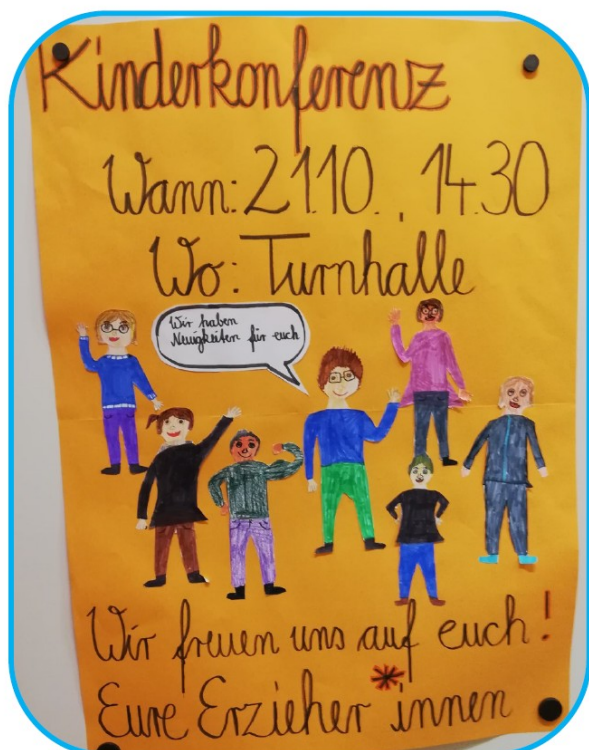 Kinderkonferenz
Wann: 21.10., 14.30
Wo: Turnhalle
Wir haben
Neuigkeiten für euch
Wir freuen uns auf euch!
Eure Erzieher*innen